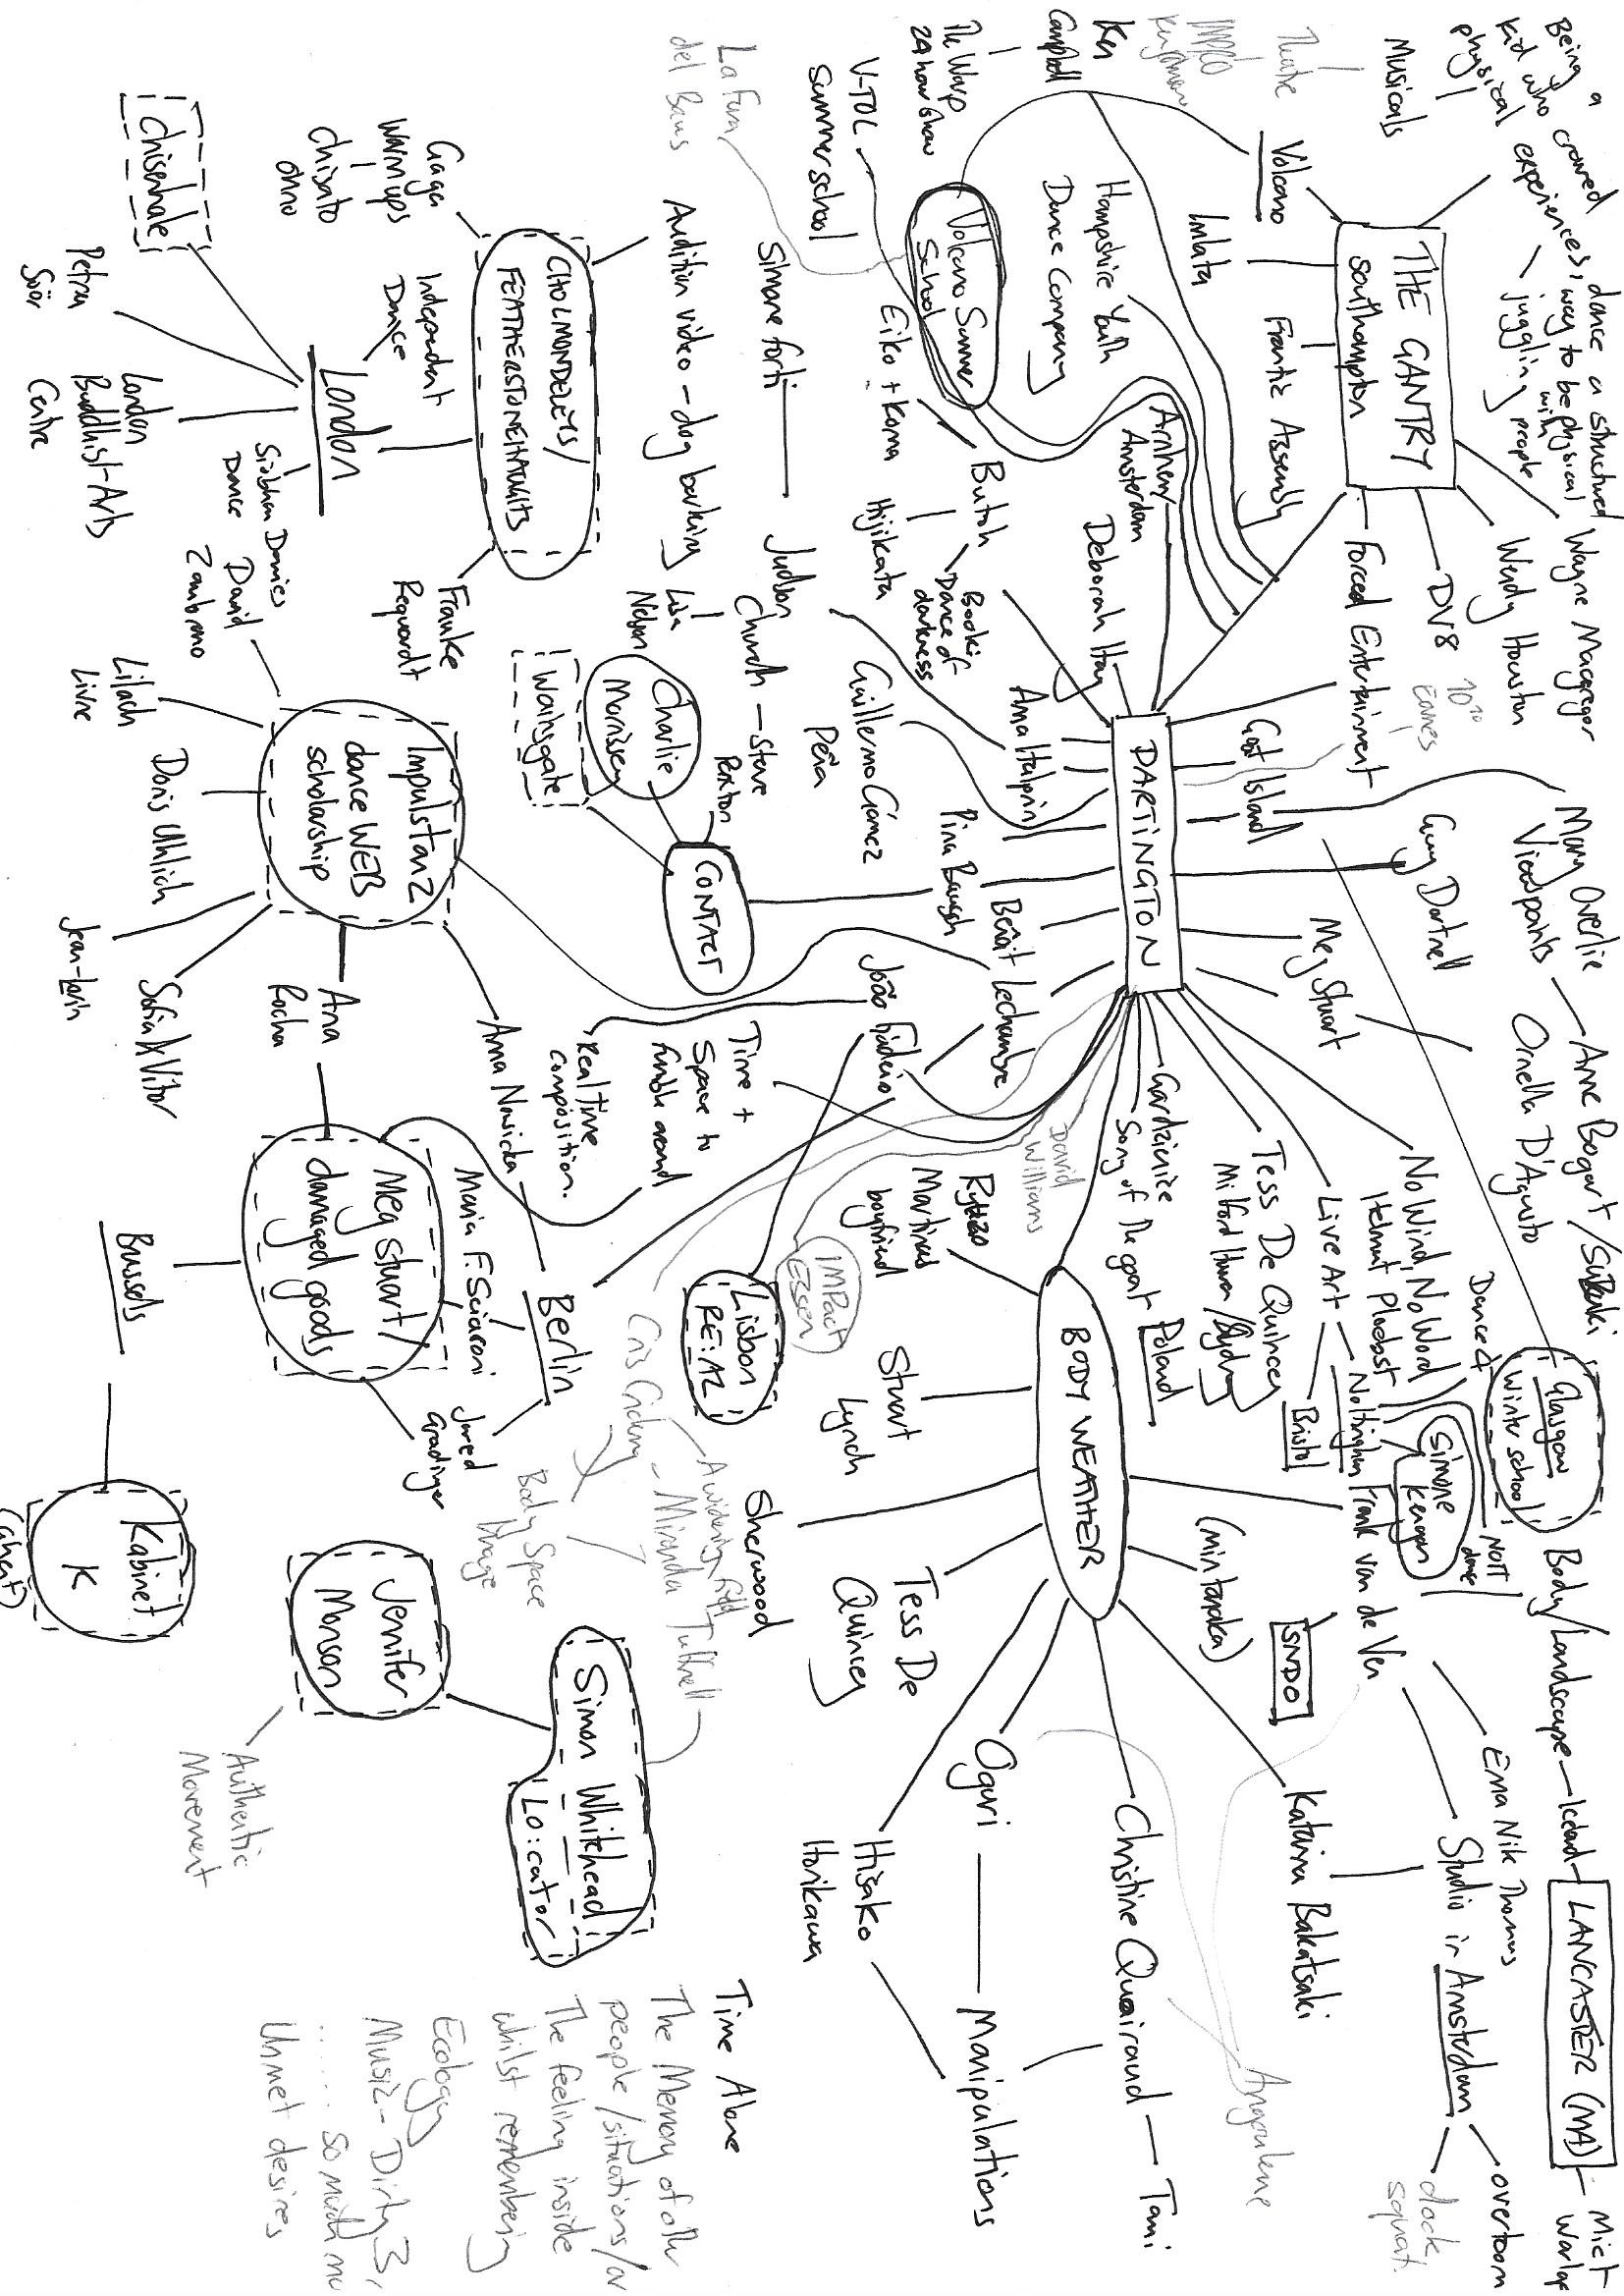 Being a
kid who craved
physical experiences, dance a structured
way to be physical
with
juggling people
Musicals
THE GANTRY
Southampton
Volcano
Imlata
Frantic Assembly
Forced Entertainment
DV8
Wendy Houston
Wayne Macgregor
Ken
Campbell
The Warp
24 hour show
V-TOL
Summer school
La Fura
del Baus
Hampshire Youth
Dance Company
Volcano Summer
School
Eiko + Koma
Butoh
Hijikata
Book:
Dance of
darkness
Arnhem/
Amsterdam
Deborah Hay
Simone forti
Judson
Church
Steve
Paxton
Lisa
Nelson
Audition video - dog barking
CHOLMONDELEYS/
FEATHERSTONEHAUGHS
Gaga
Warmups
Chisato
ohno
Independent
Dance
Chisenhale
London
Petra
Söör
London
Buddhist Arts
Centre
Siobhan Davies
Dance
Frauke
Requardt
DARTINGTON
Goat Island
Mary Overlie
Viewpoints
Anne Bogart / Suzuki
Guy Dartnell
Meg Stuart
Ornella D'Agusto
Ana Halprin
Guillermo Gómez
Peña
Pina Bausch
Benôit Lechambre
João Fiadeio
Real time
composition.
Time +
Space to
fumble around
CONTACT
Charlie
Morrissey
Wainsgate
Impulstanz
dance WEB
scholarship
David
Zambrano
Lilach
Livne
Doris Uhlich
Jean-Lorin
Sofia & Vitor
Ana
Rocha
Ana Nowicka
Meg Stuart/
damaged goods
Maria F. Sciaroni
Berlin
Jared
Gradinger
Brussels
Kabinet
K
Lisbon
RE:AL
IMPact
Essen
David
Williams
No Wind, No Word
Helmut Plaebst
Live Art
Nottingham
Bristol
Tess De Quincey
Milford Haven / Sydney
Gardzienice
Song of the goat
Poland
Dance 4
NOTT
dance
Simone
Kenyon
Glasgow
Winter school
Body/Landscape
Iceland
LANCASTER (MA)
BODY WEATHER
Martinus
boyfriend
Stuart
Lynch
Sherwood
Tess De
Quincey
(min tanaka)
Frank van de Ven
SNDO
Ema Nik Thomas
Studio in Amsterdam
overtoom
dock
squat
Katerina Bakatsaki
Christine Quoiraud
Tami
Oguri
Manipulations
Hisako
Horikawa
Angouleme
Miranda Tufnell
A widening field
Body Space
Image
Simon Whitehead
Lo:cator
Jenifer
Monson
Authentic
Movement
Time Alone
The Memory of other
people/situations/
The feeling inside
whilst remembering
Ecology
Music - Dirty 3,
...... So much
Unmet desires